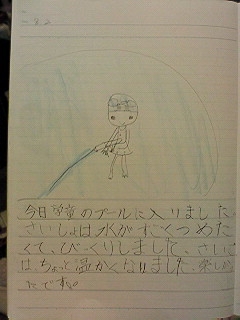 今日学童のプールに入りました。
さいしょは水がすごくつめた
くて、びっくりしました、さいご
は、ちょっと温かくなりました。楽しか
たです。